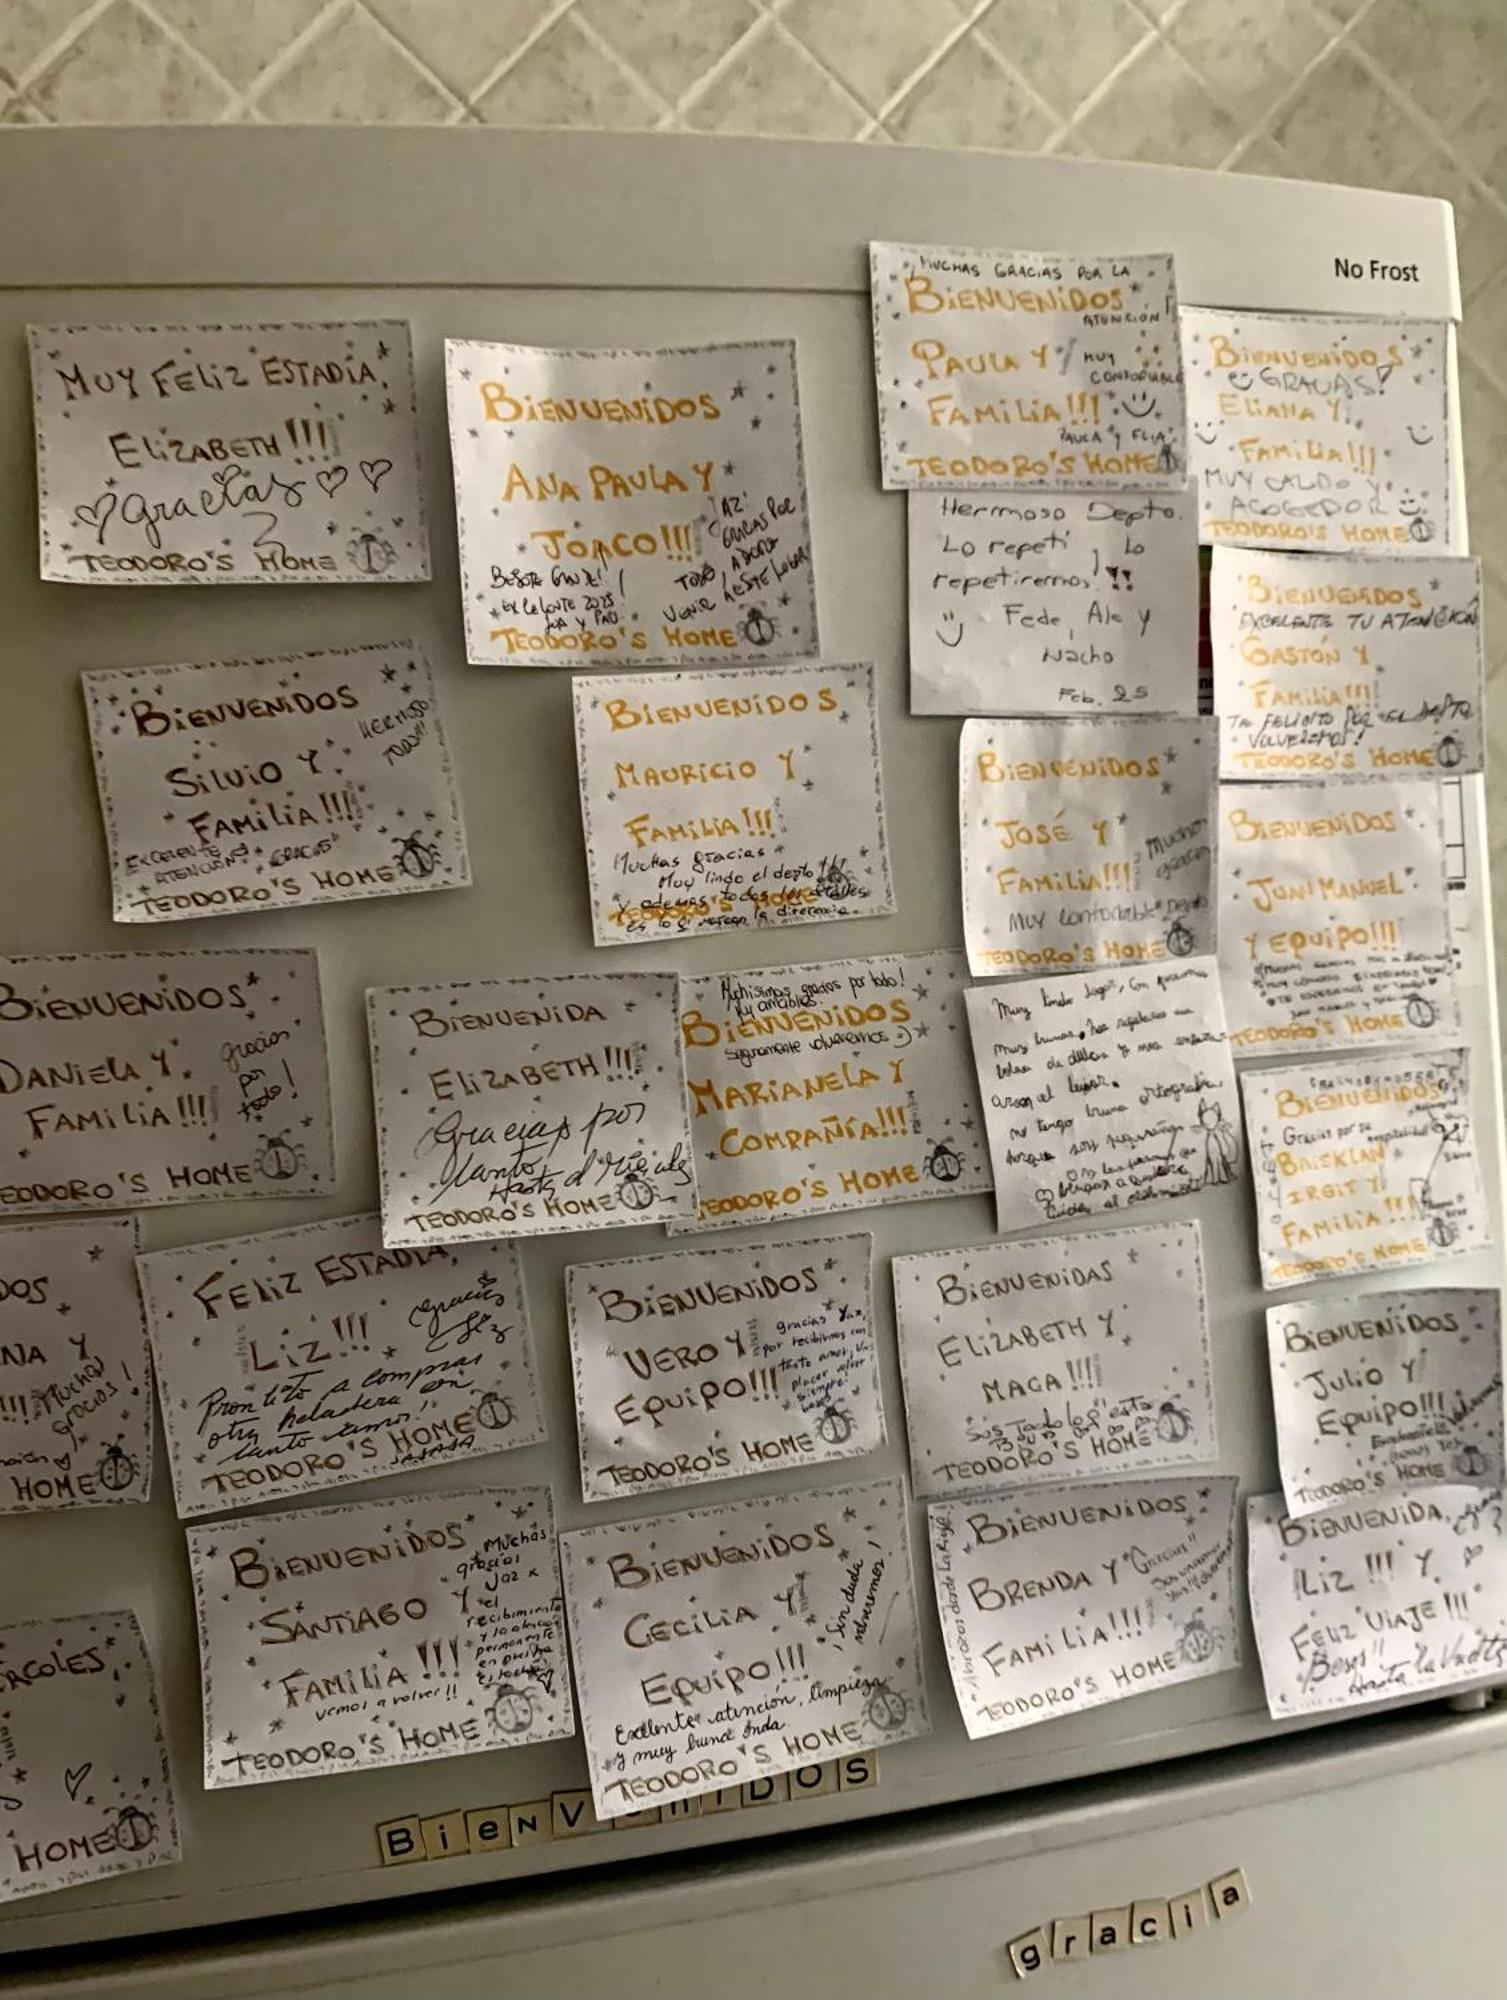 No Frost
MUY FELIZ ESTADÍA,
ELIZABETH!!!
Gracias
TEODORO'S HOME
BIENVENIDOS
ANA PAULA Y
JOACO!!!
GRACIAS POR
TODO,
VENIR A ESTE LUGAR
EXCELENTE 2025!
TEODORO'S HOME
MUCHAS GRACIAS POR LA
BIENVENIDOS
ATENCIÓN!
PAULA Y
MUY
CONFORTABLE
FAMILIA!!!
PAULA Y FLIA
TEODORO'S HOME
BIENVENIDOS
GRACIAS!
ELIANA Y
FAMILIA!!!
MUY CALIDO Y
ACOGEDOR
TEODORO'S HOME
Hermoso Depto.
Lo repetí, Lo
repetiremos!!
Fede, Ale y
Nacho
Feb. 25
BIENVENIDOS
EXCELENTE TU ATENCIÓN
GASTÓN Y
FAMILIA!!!
TE FELICITO POR EL DEPTO
VOLVEREMOS!
TEODORO'S HOME
BIENVENIDOS
HERMOSO
TODO!!!
SILVIO Y
FAMILIA!!!
EXCELENTE
ATENCIÓN
GRACIAS
TEODORO'S HOME
BIENVENIDOS
MAURICIO Y
FAMILIA!!!
Muchas gracias
Muy lindo el depto!!!
y además todos los detalles
es lo q' marcan la diferencia.
TEODORO'S HOME
BIENVENIDOS
JOSÉ Y
FAMILIA!!!
Muchas
gracias
MUY confortable Depto
TEODORO'S HOME
BIENVENIDOS
JUAN MANUEL
Y EQUIPO!!!
TEODORO'S HOME
BIENVENIDOS
DANIELA Y
FAMILIA!!!
gracias
por
todo!
TEODORO'S HOME
BIENVENIDA
ELIZABETH!!!
Gracias por
tanto
Hasta el
TEODORO'S HOME
Muchísimas gracias por todo!
Muy amables.
BIENVENIDOS
Seguramente volveremos :)
MARIANELA Y
COMPAÑÍA!!!
TEODORO'S HOME
Muy lindo lugar, con
no tengo buena ortografía
porque soy
BIENVENIDOS
Gracias por su
hospitalidad
BAISKLAN
IRGIT Y
FAMILIA!!!
TEODORO'S HOME
DOS
NA Y
!!!
Muchas
gracias!
HOME
FELIZ ESTADÍA,
LIZ!!!
gracias
Liz
Prontito a comprar
otra heladera con
tanto amor!
JAJAJA
TEODORO'S HOME
BIENVENIDOS
VERO Y
EQUIPO!!!
gracias Yaz,
por recibirnos con
tanto amor, un
placer volver
siempre!
TEODORO'S HOME
BIENVENIDAS
ELIZABETH Y
MAGA!!!!
TEODORO'S HOME
BIENVENIDOS
JULIO Y
EQUIPO!!!
TEODORO'S HOME
BIENVENIDOS
SANTIAGO Y
FAMILIA!!!
Muchas
gracias
Jaz x
el
recibimiento
y la atención
permanente
en nuestra
estadía
vamos a volver!!
TEODORO'S HOME
BIENVENIDOS
CECILIA Y
EQUIPO!!!
¡Sin duda
volveremos!
Exelente atención, limpieza
y muy buena onda.
TEODORO'S HOME
Abrazos desde La Rioja!
BIENVENIDOS
BRENDA Y
Gracias!!
FAMILIA!!!
TEODORO'S HOME
BIENVENIDA,
LIZ!!! Y
FELIZ VIAJE!!!
Besos!!
Hasta la vuelta
RCOLES,
HOME
BIENVENIDOS
gracia